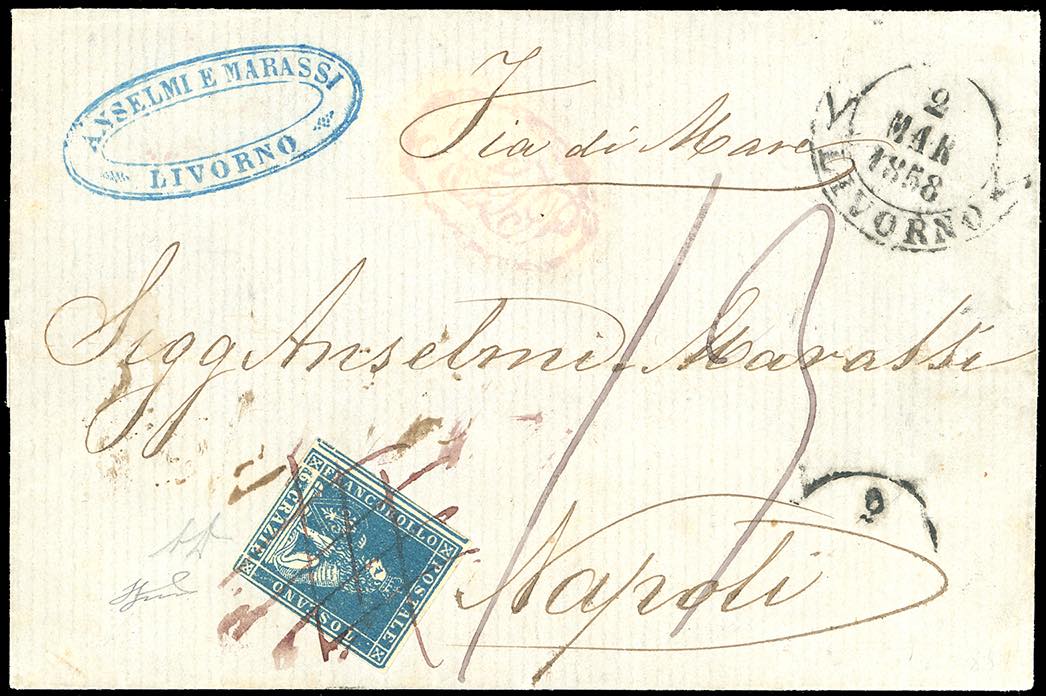 ANSELMI E MARASSI
LIVORNO
Via di Mare
2
MAR
1858
LIVORNO
Sigg Anselmi. Marassi
13
9
Napoli
FRANCOBOLLO
POSTALE
TOSCANO
6 CRAZIE